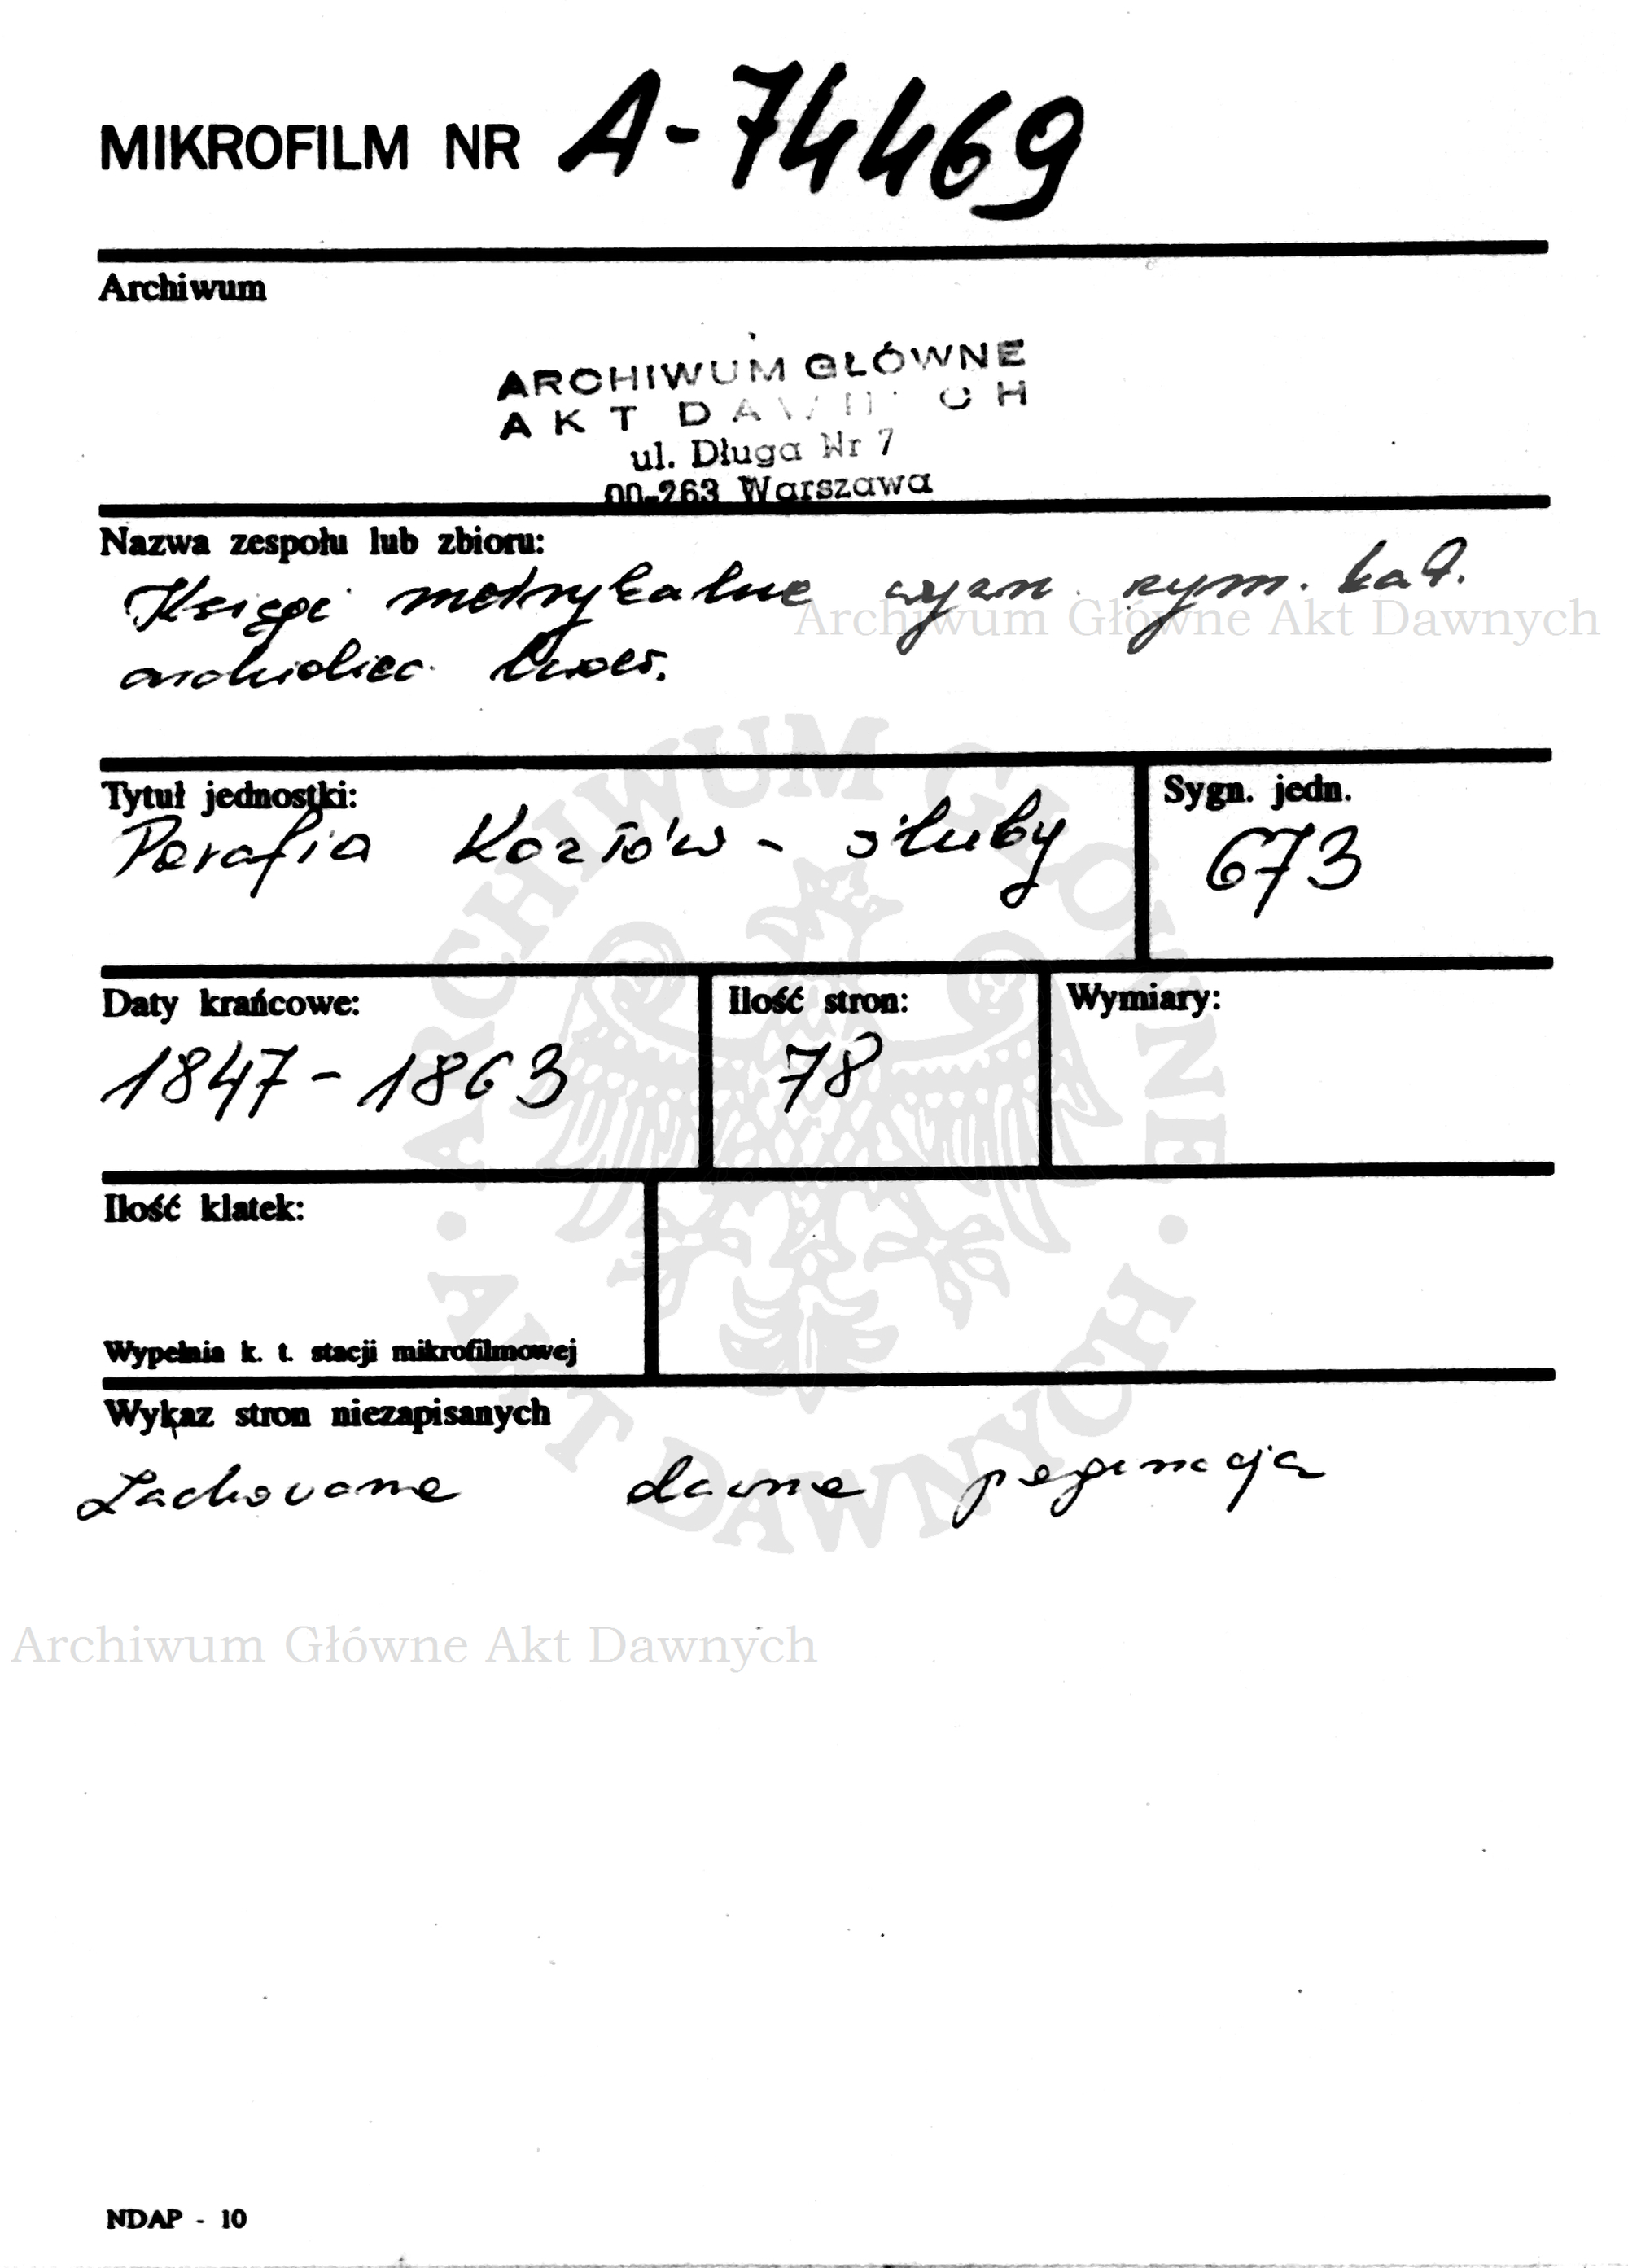 MIKROFILM NR A-74469
Archiwum
ARCHIWUM GŁÓWNE
AKT DAWNYCH
ul. Długa Nr 7
00-263 Warszawa
Nazwa zespołu lub zbioru:
Księgi metrykalne wyzn. rzym. kat.
Archiwum Główne Akt Dawnych
archidiec. lwow.
Tytuł jednostki:
Sygn. jedn.
Parafia Kozłów - śluby
673
Daty krańcowe:
Ilość stron:
Wymiary:
1847-1863
78
Ilość klatek:
Wypełnia k. t. stacji mikrofilmowej
Wykaz stron niezapisanych
Zachowano dawną paginację
Archiwum Główne Akt Dawnych
ARCHIWUM GŁÓWNE · AKT DAWNYCH ·
NDAP - 10